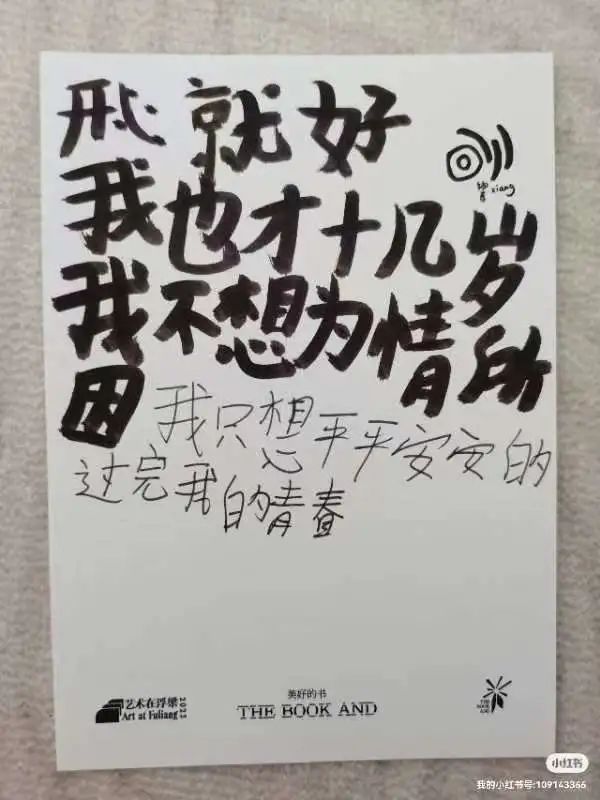 就好
xiang
我也才十几岁
我不想为情所
困 我只想平平安安的
过完我的青春
艺术在浮梁 2023
Art at Fuliang
美好的书
THE BOOK AND
THE BOOK AND
小红书
我的小红书号:109143366